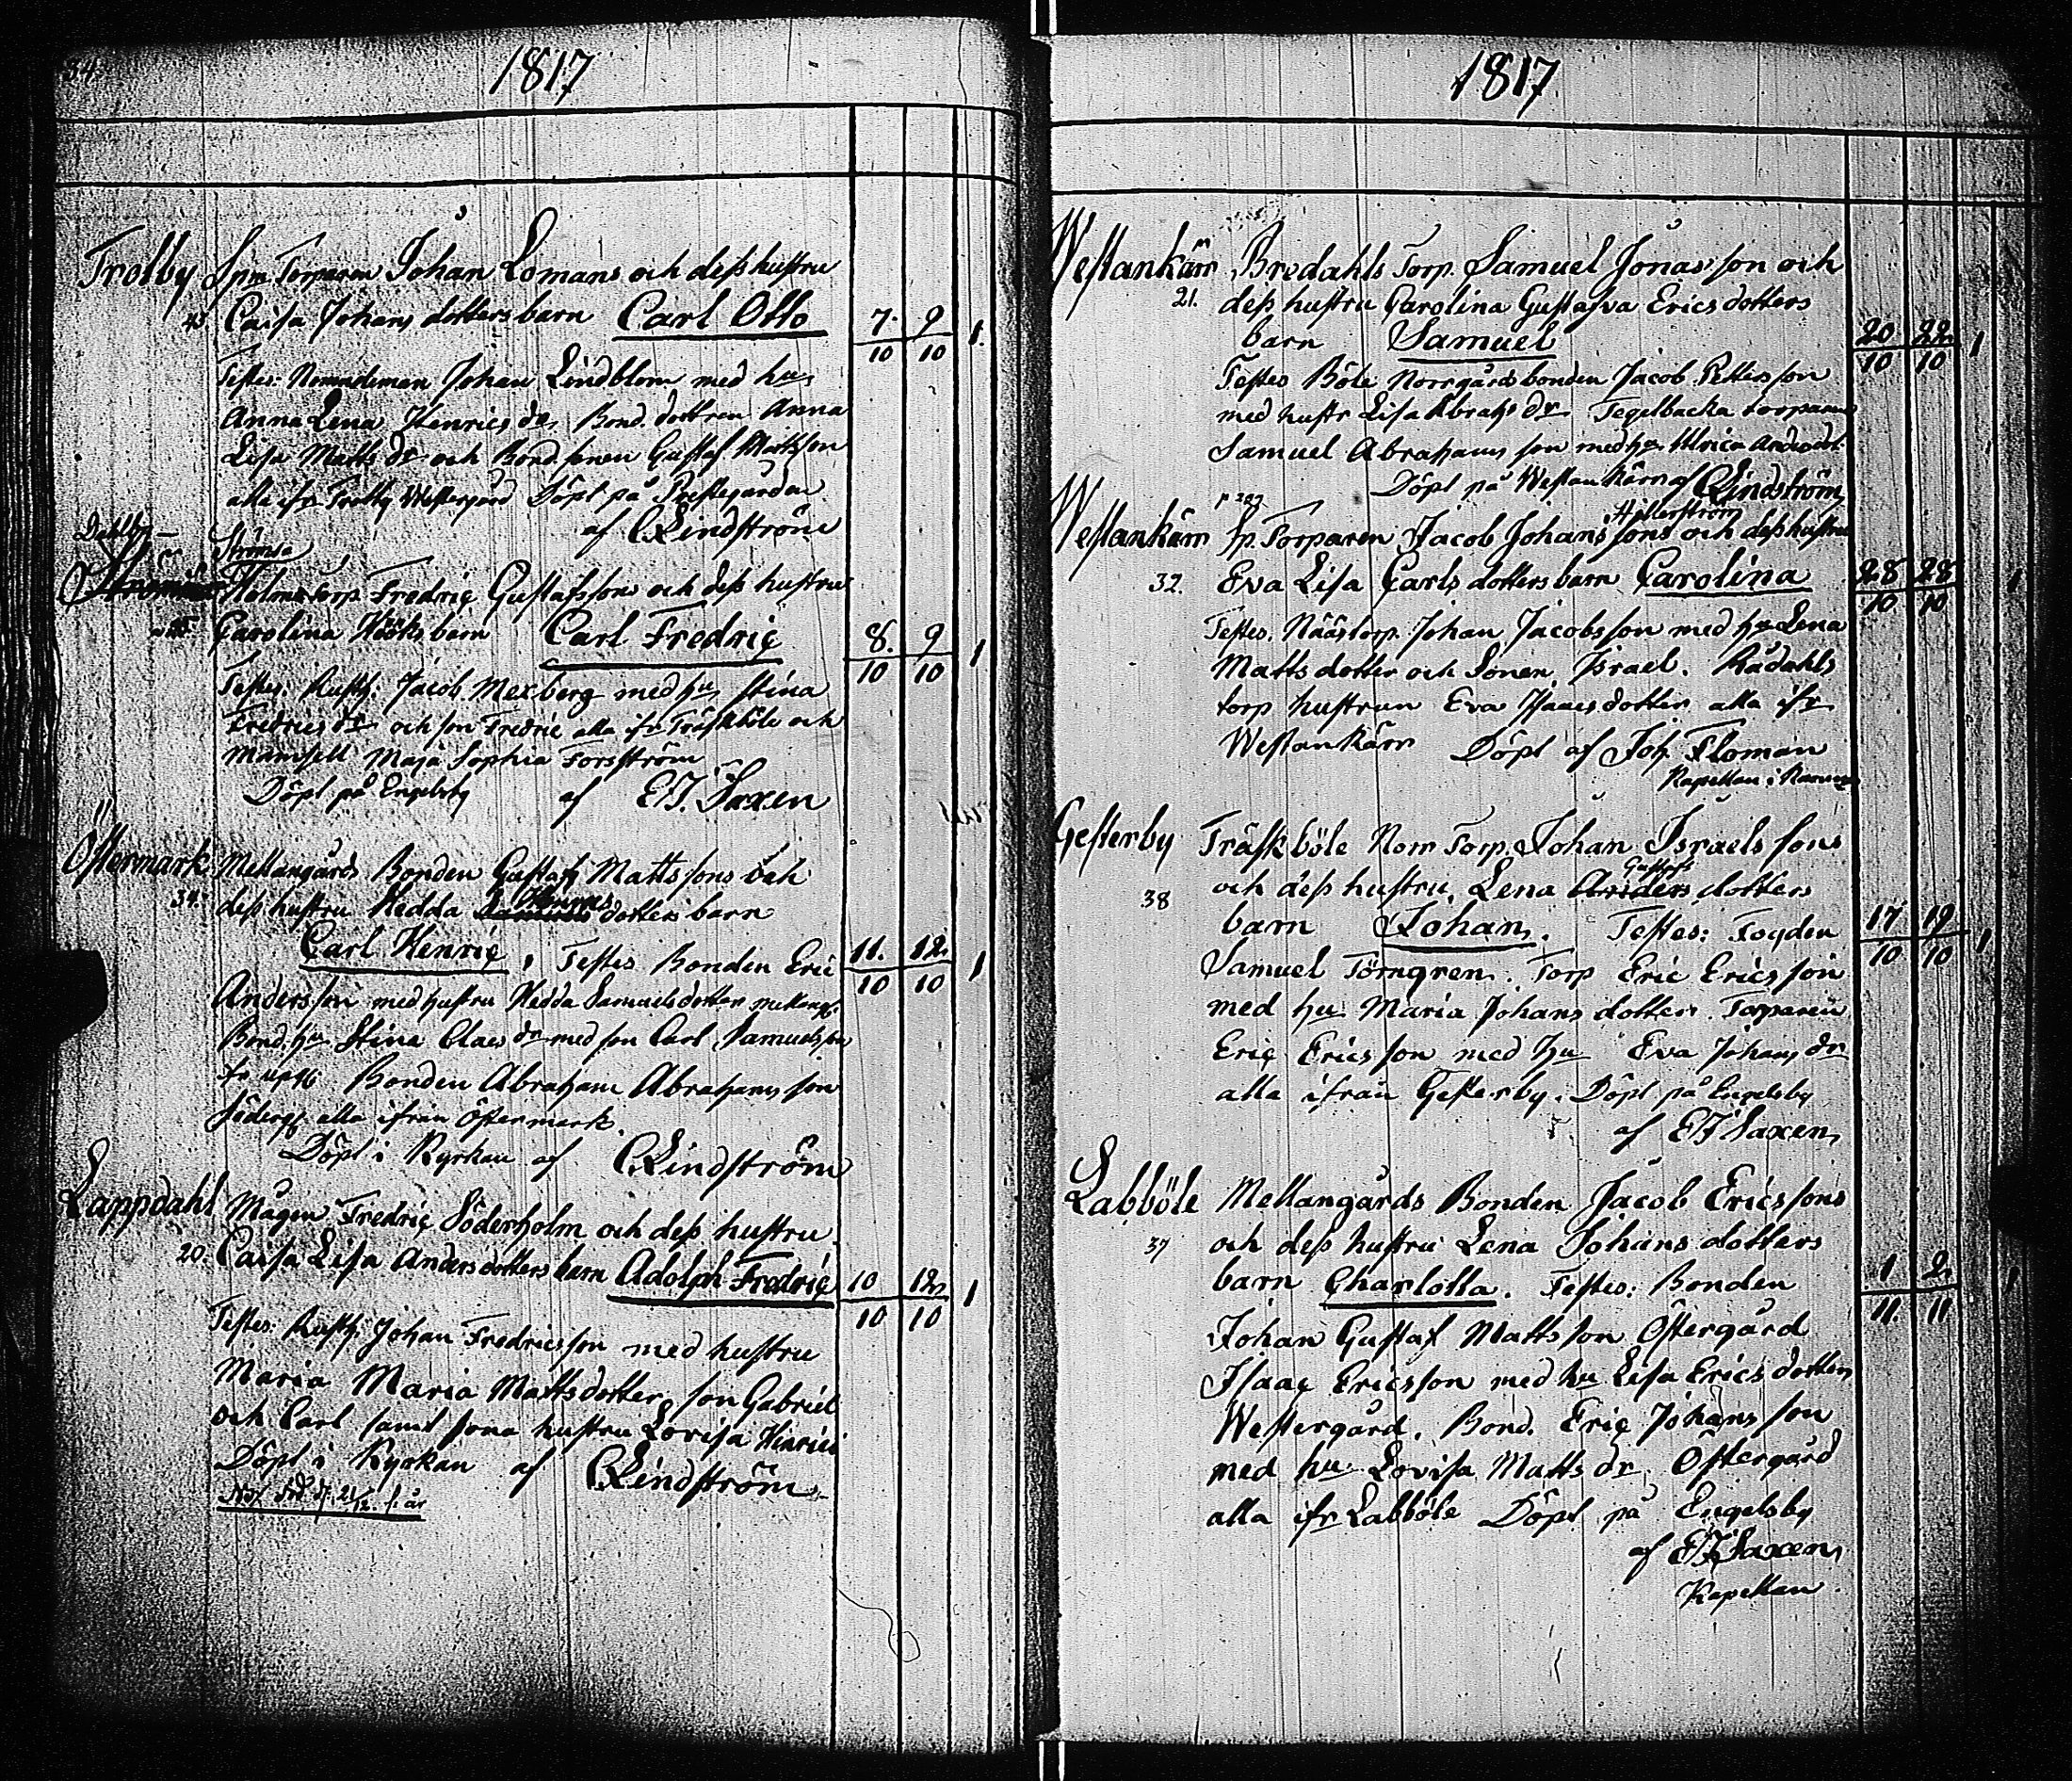 34.
1817
Trotby Spm Torparen Johan Lomans och dess hustru
43 Caisa Johans dotters barn Carl Otto 7. 9 1.
10 10
Testes: Nemndeman Johan Lindblom med hu
Anna Lena Henrics dr, Bond. dottren Anna
Lisa Matts dr och Bond sonen Gustaf Mattsson
alla ifr Trotby Westergård Döpt på Prestegården
af CLindström
Dahlby
Strömsa
Holms Torp. Fredric Gustafsson och dess hustru
Carolina Hööks barn Carl Fredric 8. 9 1
10 10
Testes: Rusth: Jacob Mexberg med hu Stina
Fredrics dr och son Fredric alla ifr Träskböle och
Mamsell Maja Sophia Forsström
Döpt på Engelsby af EJ. Saxen
Östermark Mellangårds Bonden Gustaf Mattssons och
34. dess hustru Hedda Henrics dotters barn
Carl Henric, Testes Bonden Eric 11. 12. 1
10 10
Andersson med hustru Hedda Samuels dotter mellangd
Bond. hu Stina Claes dr med son Carl Samuelsson
Bonden Abraham Abrahamsson
Södergd alla ifrån Östermark.
Döpt i Kyrkan af CLindström
Lappdahl Mågen Fredric Söderholm och dess hustru
20. Caisa Lisa Anders dotters barn Adolph Fredric 10 12 1
10 10
Testes: Rusth: Johan Fredricsson med hustru
Maria Maria Mattsdotter, son Gabriel
och Carl samt sona hustru Lovisa Henrici
Döpt i Kyrkan af CLindström
död d. 21/12 s. år
1817
Westankärr Bredahls Torp. Samuel Jonasson och
21. dess hustru Carolina Gustafva Ericsdotters
barn Samuel 20 22 1
10 10
Testes Böle Norrgårds bonden Jacob Pettersson
med hustr Lisa Abrahs dr. Tegelbacka torparen
Samuel Abrahamsson med hu Ulrica Andersdt
Döpt på Westankärr af CLindström
p 289
Hellerström
Westankärr Sp. Torparen Jacob Johans sons och dess hustru
32. Eva Lisa Carls dotters barn Carolina 28 28 1
10 10
Testes. Nääs torp. Johan Jacobsson med hu Lena
Matts dotter och Sonen Israel. Rådahls
torp hustrun Eva Isaacs dotter alla ifr
Westankärr Döpt af Joh. Floman
Kapellan i
Gesterby Träskböle Norr Torp. Johan Israelssons
Gustafs
38 och dess hustru Lena Anders dotters
barn Johan. Testes: Fogden 17 19 1
10 10
Samuel Törngren. Torp Eric Ericsson
med hu Maria Johans dotter. Torparen
Eric Ericsson med hu Eva Johans dr
alla ifrån Gesterby. Döpt på Engelsby
af EJ Saxen
Labböle Mellangårds Bonden Jacob Ericssons
37 och dess hustru Lena Johans dotters
barn Charlotta. Testes: Bonden 1 2 1
11. 11
Johan Gustaf Mattsson Östergård
Isaac Ericsson med hu Lisa Erics dotter
Westergård. Bond. Eric Johansson
med hu. Lovisa Matts dr. Östergård
alla ifr Labböle Döpt på Engelsby
af EJ Saxen
Kapellan